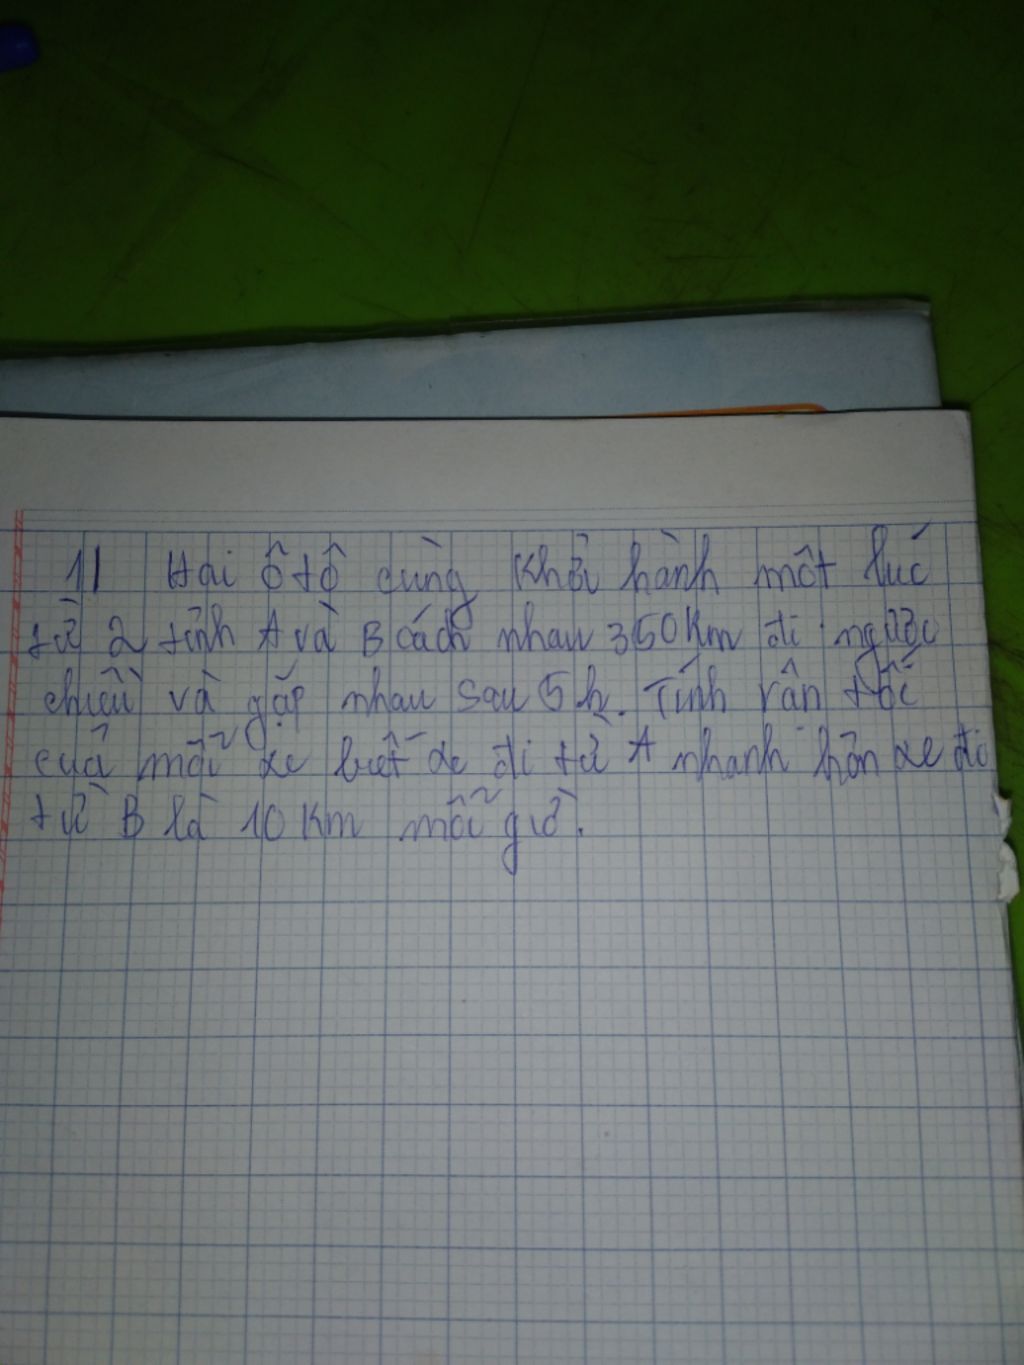 11 Hai ôtô cùng khởi hành một lúc
từ 2 tỉnh A và B cách nhau 350 Km đi ngược
chiều và gặp nhau sau 5 h. Tính vân tốc
của mỗi xe biết xe đi từ A nhanh hơn xe đi
từ B là 10 Km mỗi giờ.